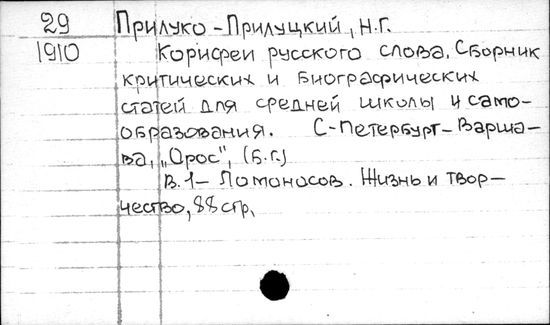 29 Прилуко-Прилуцкий, Н.Г.
1910 Корифеи русского слова. Сборник
критических и биографических
статей для средней школы и само-
образования. С-Петербург-Варша-
ва, „Орос", (б.г.)
В.1- Ломоносов. Жизнь и твор-
чество, 88 стр.